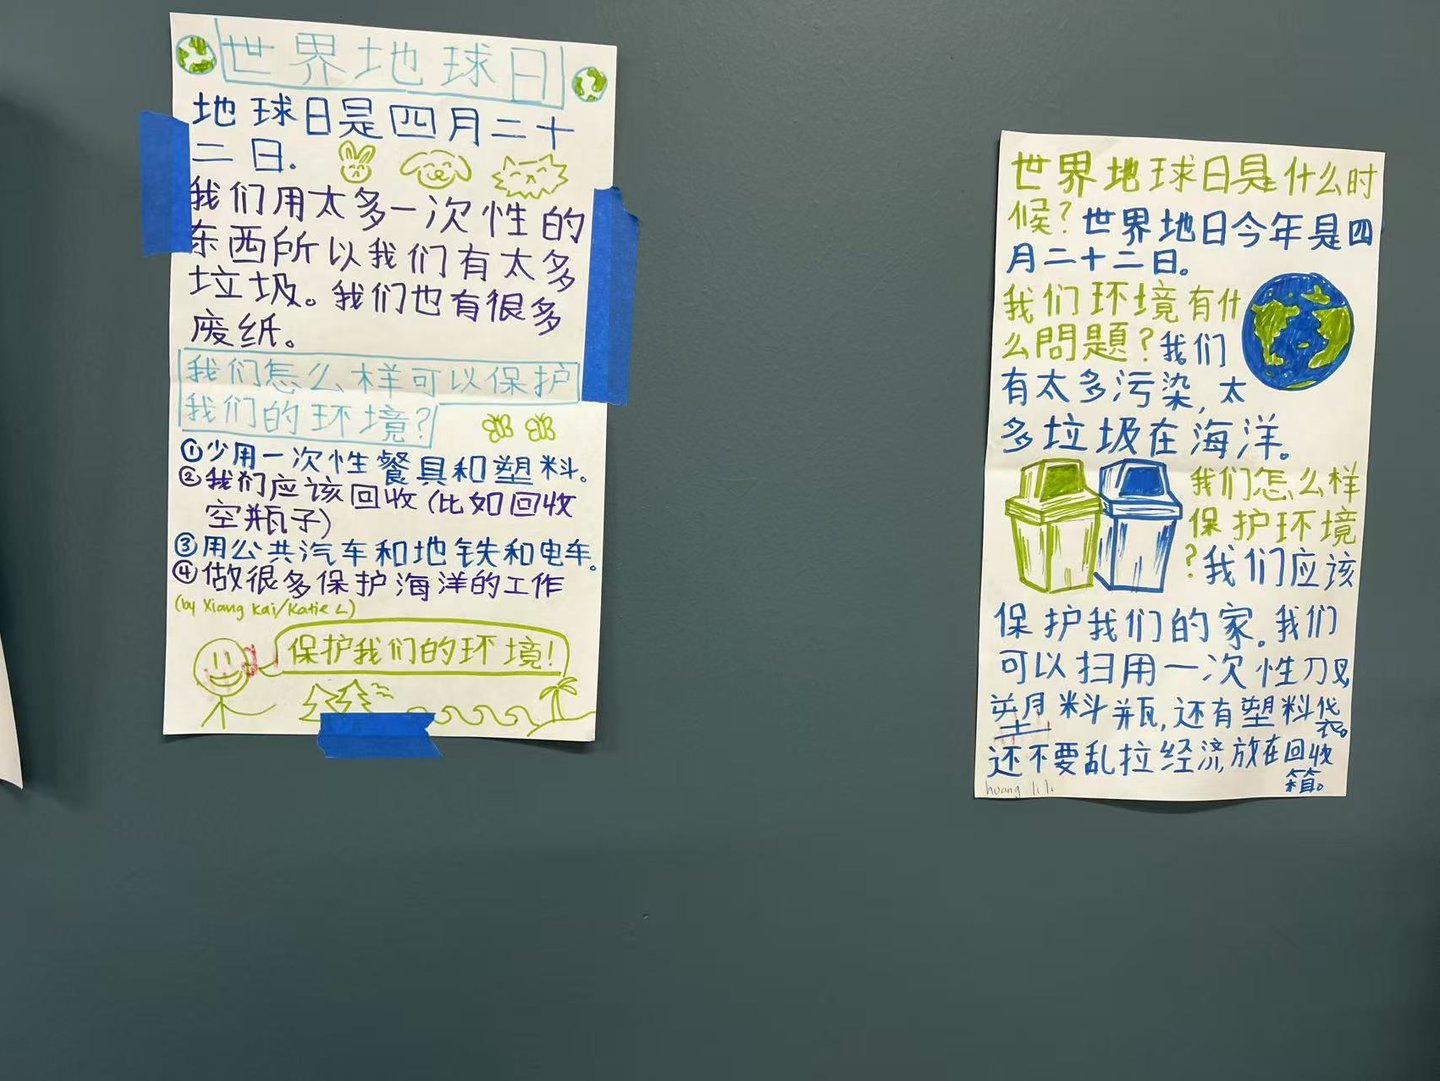 世界地球日
地球日是四月二十
二日.
我们用太多一次性的
东西所以我们有太多
垃圾。我们也有很多
废纸。
我们怎么样可以保护
我们的环境?
①少用一次性餐具和塑料。
②我们应该回收(比如回收
空瓶子)
③用公共汽车和地铁和电车。
④做很多保护海洋的工作
(by Xiang Kai/Katie L)
保护我们的环境!
世界地球日是什么时
候?世界地日今年是四
月二十二日。
我们环境有什
么問題?我们
有太多污染,太
多垃圾在海洋。
我们怎么样
保护环境
?我们应该
保护我们的家。我们
可以扫用一次性刀叉
塑料瓶,还有塑料袋。
还不要乱拉经济,放在回收
箱。
huang li li